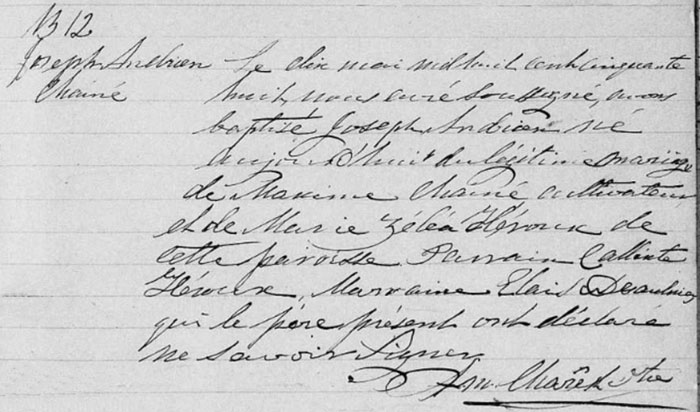 B 12
Joseph Andrien
Chainé
Le dix mai mil huit cent cinquante
huit, nous curé soussigné, avons
baptisé Joseph Andrien né
aujourd'hui du légitime mariage
de Maxime Chainé cultivateur
et de Marie Zéléa Héroux de
cette paroisse Parrain Callixte
Héroux, Marraine
qui le père présent ont déclaré
ne savoir signer
Ptre